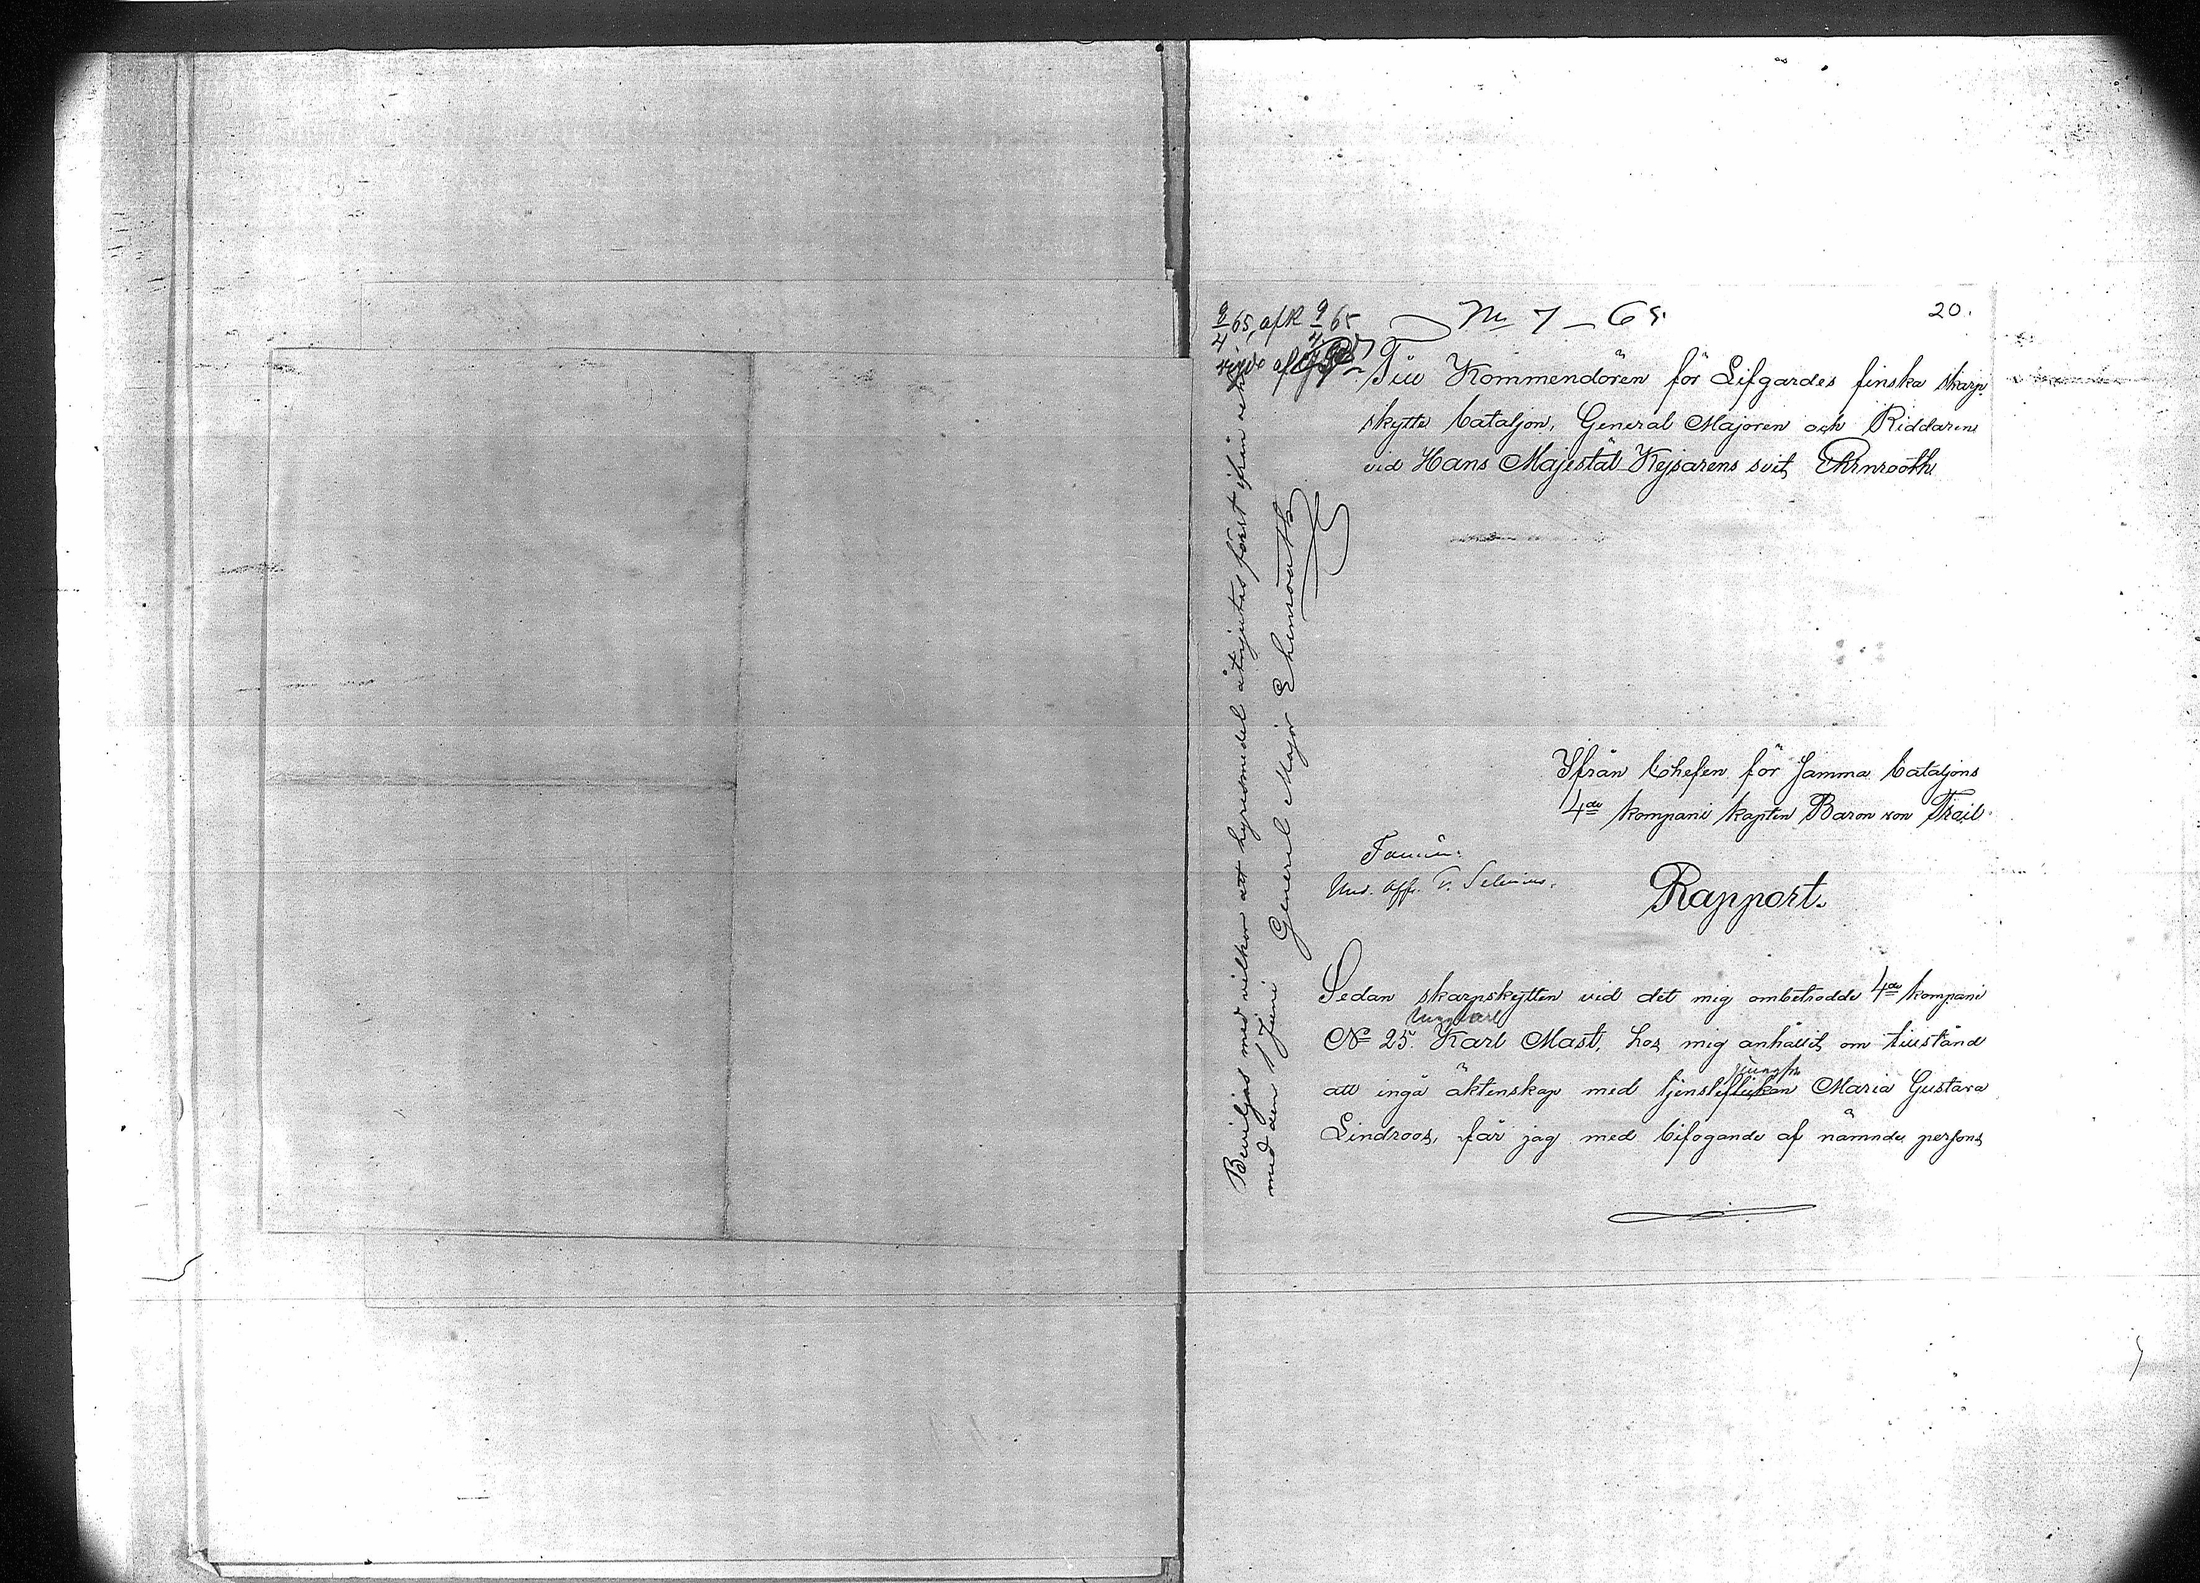 8/4 65, afk 9/4 65
№ 7 – 65.
20.
Till Kommendören för Lifgardes finska skarp-
skytte bataljon, General Majoren och Riddaren
vid Hans Majestät Kejsarens svit, Ehrnrooth
Ifrån Chefen för samma bataljons
4de kompani kapten Baron von Troil.
Und. Offr.
Rapport.
Sedan skarpskytten vid det mig ombetrodde 4de kompani
Ungkarl
№ 25. Karl Mast, hos mig anhållit om tillstånd
jungfr
att ingå äktenskap med tjensteflickan Maria Gustava
Lindroos, får jag med bifogande af nämnde persons
Beviljas med vilkor att hyresmedel åtnjutes först ifrån och
med den 1 Juni General Major Ehrnrooth